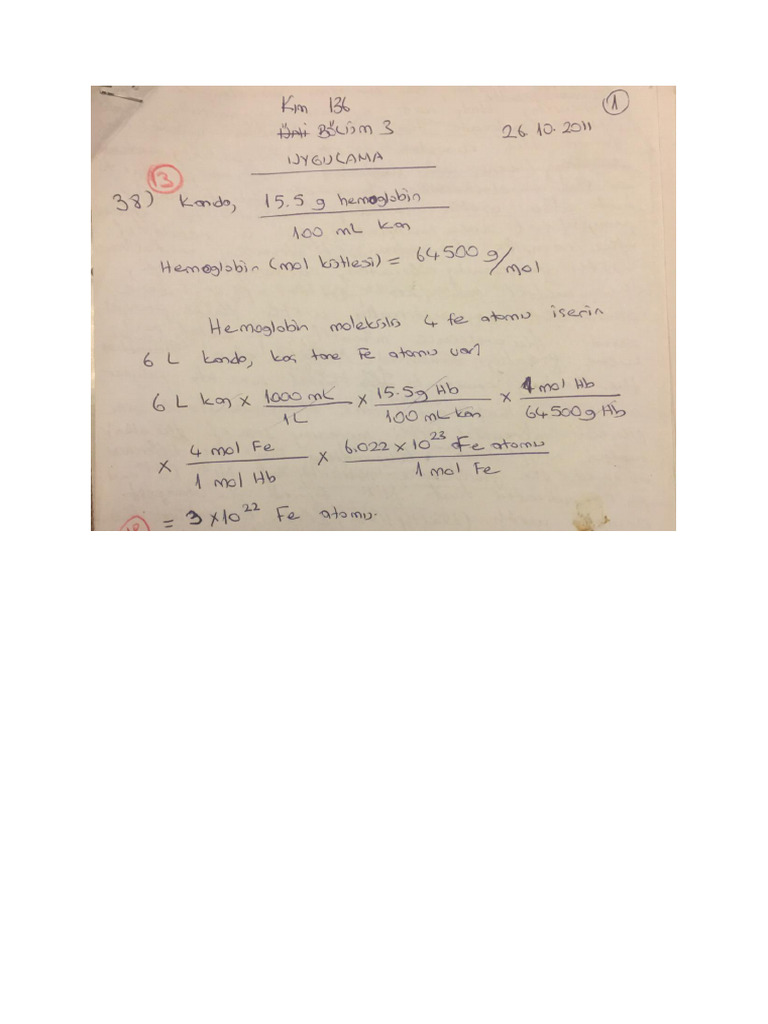 Kim 136 ①
Üni BÖLÜM 3 26.10.2011
UYGULAMA
13
38) Kanda, 15.5 g hemoglobin
100 mL kan
Hemoglobin (mol kütlesi) = 64500 g/mol
Hemoglobin molekülü 4 fe atomu içerir
6 L kanda, kaç tane Fe atomu var?
6 L kan x 1000 mL / 1L x 15.5g Hb / 100 mL kan x 1 mol Hb / 64500g Hb
x 4 mol Fe / 1 mol Hb x 6.022 x 10²³ Fe atomu / 1 mol Fe
= 3 x 10²² Fe atomu.